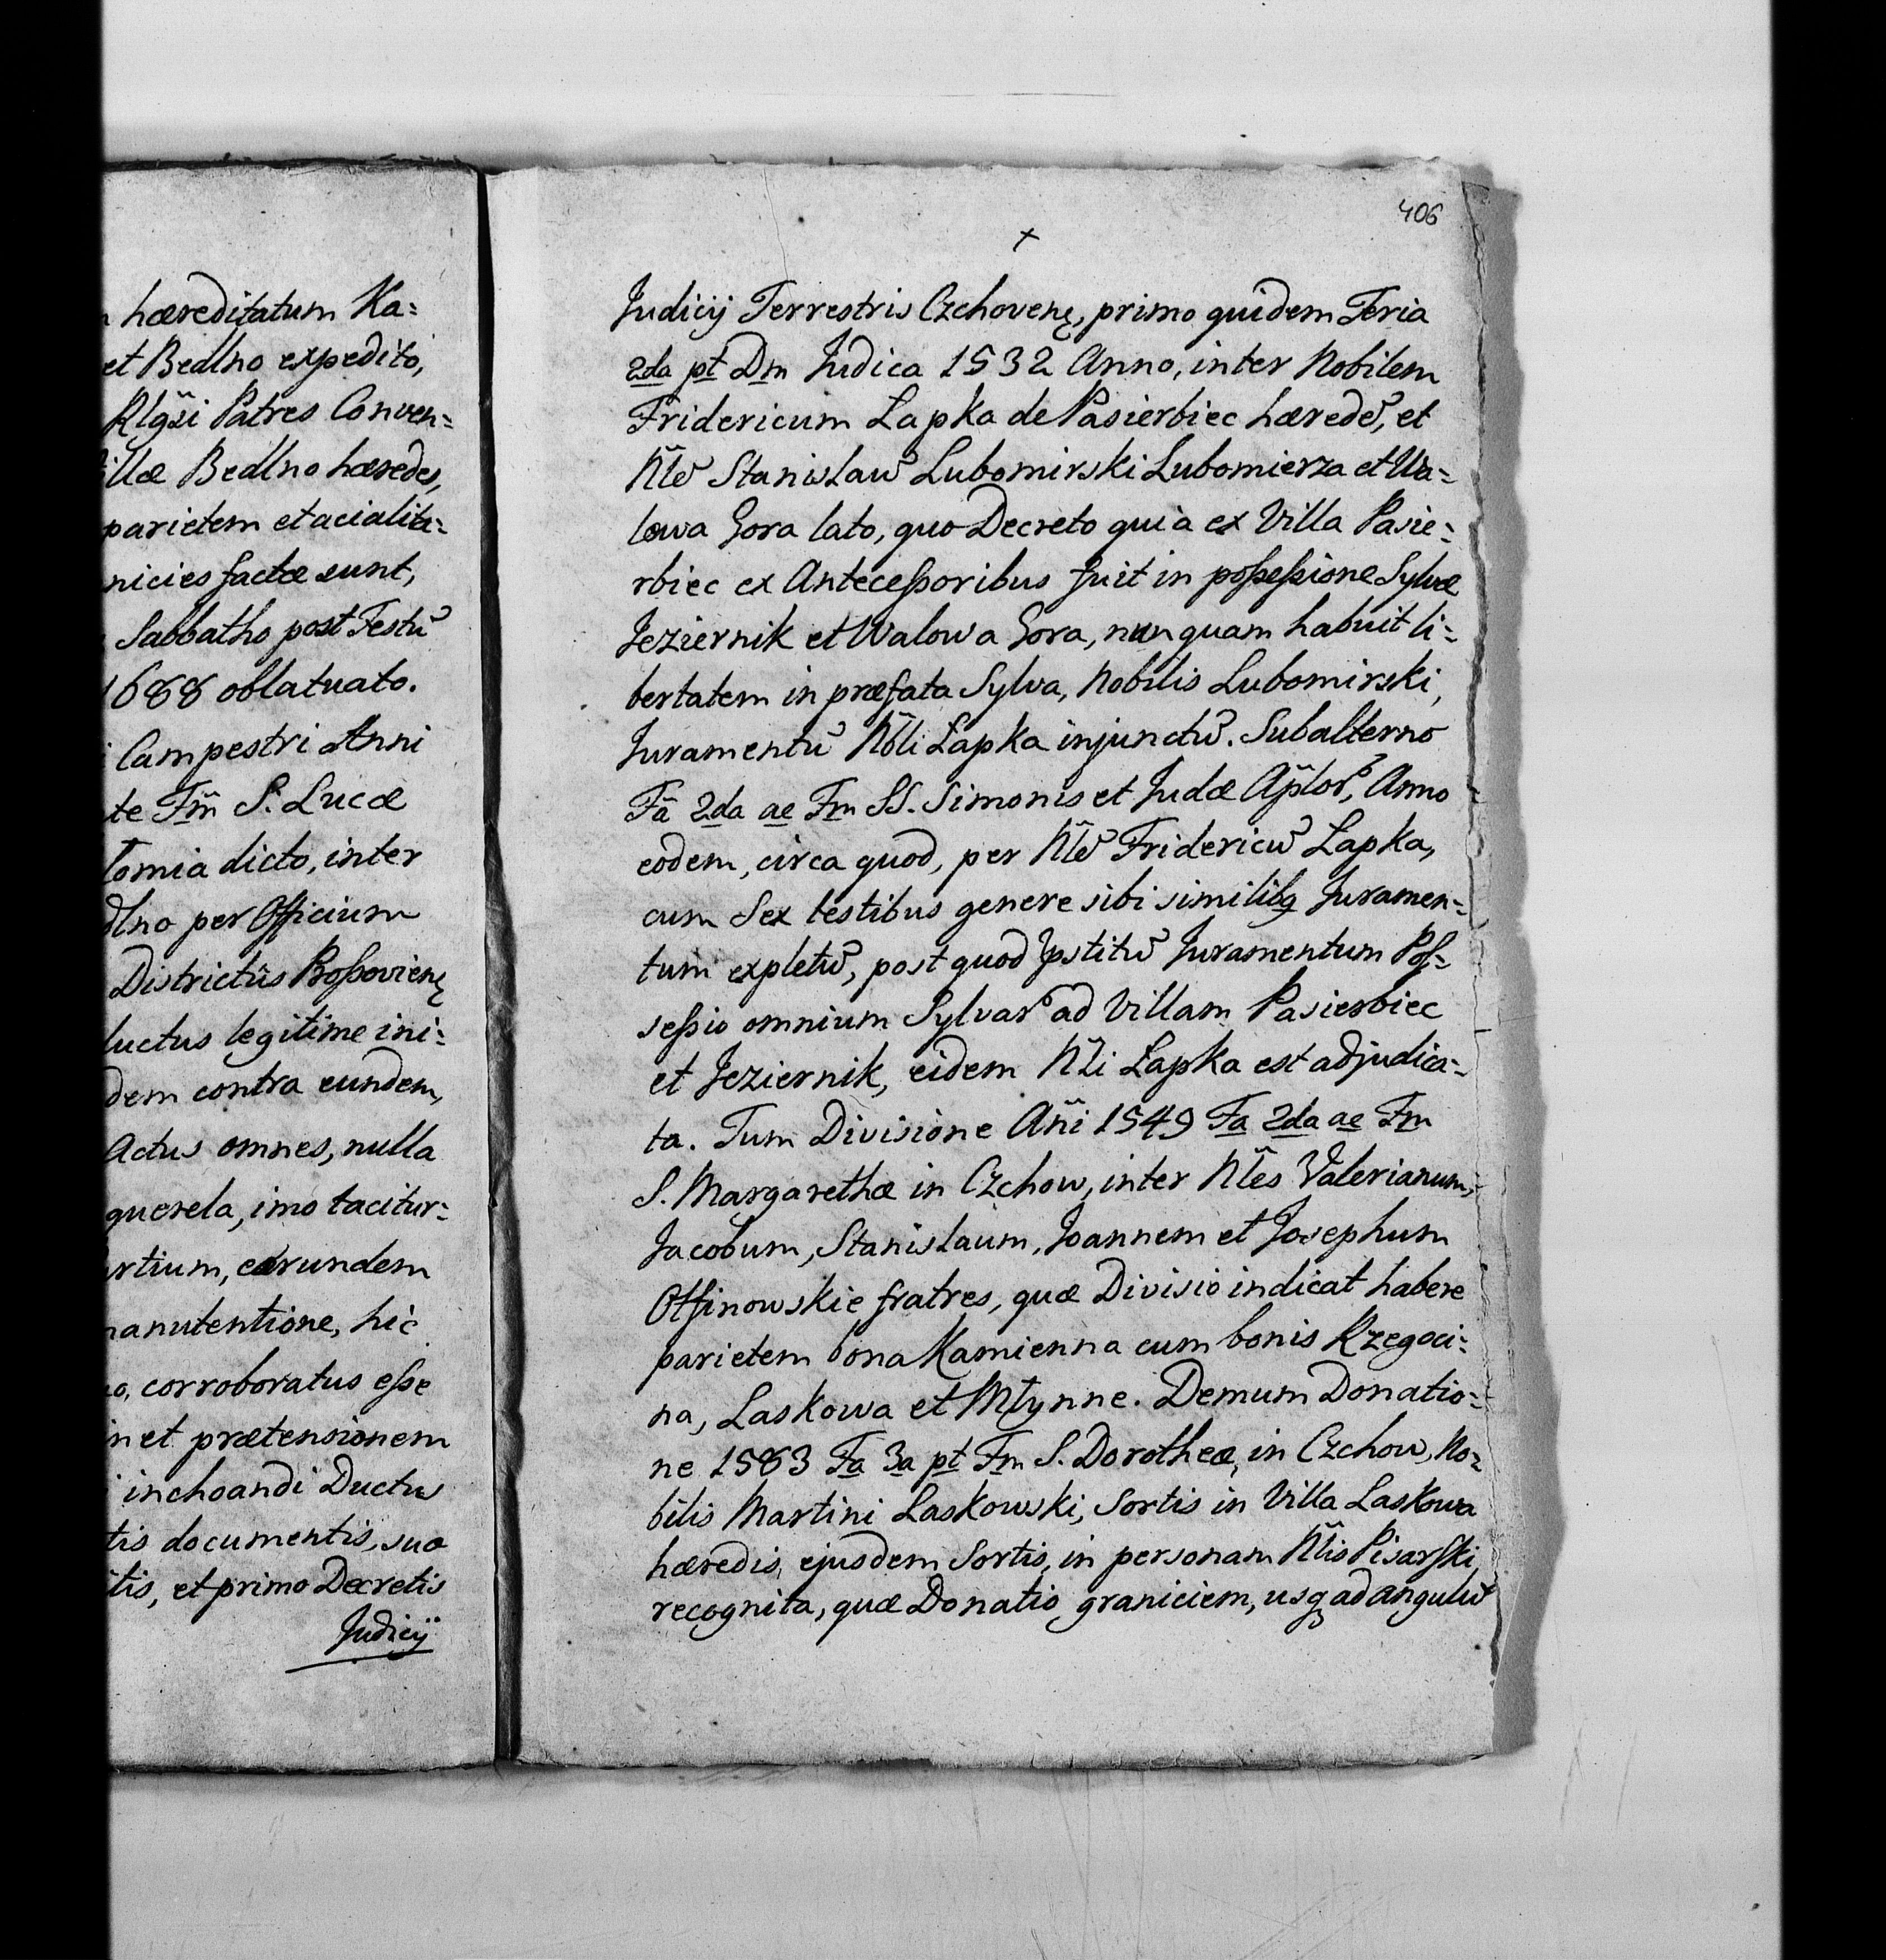 hæreditatum Ka=
et Bedlno expedito,
Rlgsi Patres Conven=
Bedlno hæredes,
parietem et acialita=
nicies factæ sunt,
Sabbatho post Festu᷈
1688 oblatuato.
Campestri Anni
te Fm̃ S. Lucæ
tomia dicto, inter
dlno per Officium
Districtûs Boſsovienę
ductus legitime ini=
dem contra eundem,
Actus omnes, nulla
querela, imo tacitur=
rtium, earundem
manutentione, hic
corroboratus eſse
et prætensionem
inchoandi Ductus
tis documentis, suo
tis, et primo Decretis
Judicÿ
406
+
Judicÿ Terrestris Czchovenę, primo quidem Feria
2da pt Dm Judica 1532 Anno, inter Nobilem
Fridericum Łapka de Pasierbiec hærede᷈, et
Nle᷈ Stanislau᷈ Lubomirski Lubomierza et Wa=
lowa Gora lato, quo Decreto quia ex Villa Pasie=
rbiec ex Anteceſsoribus fuit in poſseſsione Sylvæ
Jeziernik et Walowa Gora, nunquam habuit li=
bertatem in præfata Sylva, Nobilis Lubomirski,
Juramentu᷈ Nõli Łapka injunctu᷈. Subalterno
Fã 2da ae Fm SS. Simonis et Judæ Aplor᷈, Anno
eodem, circa quod, per Nle᷈ Fridericu᷈ Łapka,
cum Sex testibus genere sibi similibq Juramen=
tum expletu᷈, post quod pstitu᷈ Juramentum Poſ=
seſsio omnium Sylvar᷈ ad Villam Pasierbiec
et Jeziernik, eidem Nli Łapka est adjudica=
ta. Tum Divisione Añi 1549 Fa 2da ae Fm
S. Margarethæ in Czchow, inter Nles Valerianum,
Jacobum, Stanislaum, Joannem et Josephum
Otfinowskie fratres, quæ Divisio indicat habere
parietem bona Kamienna cum bonis Rzegoci=
na, Laskowa et Młynne. Demum Donatio=
ne 1583 Fa 3a pt Fm S. Dorotheæ, in Czchow, No=
bilis Martini Laskowski, Sortis in Villa Laskowa
hæredis, ejusdem Sortis, in personam Nlis Pisarski,
recognita, quæ Donatio graniciem, usq ad angulu᷈